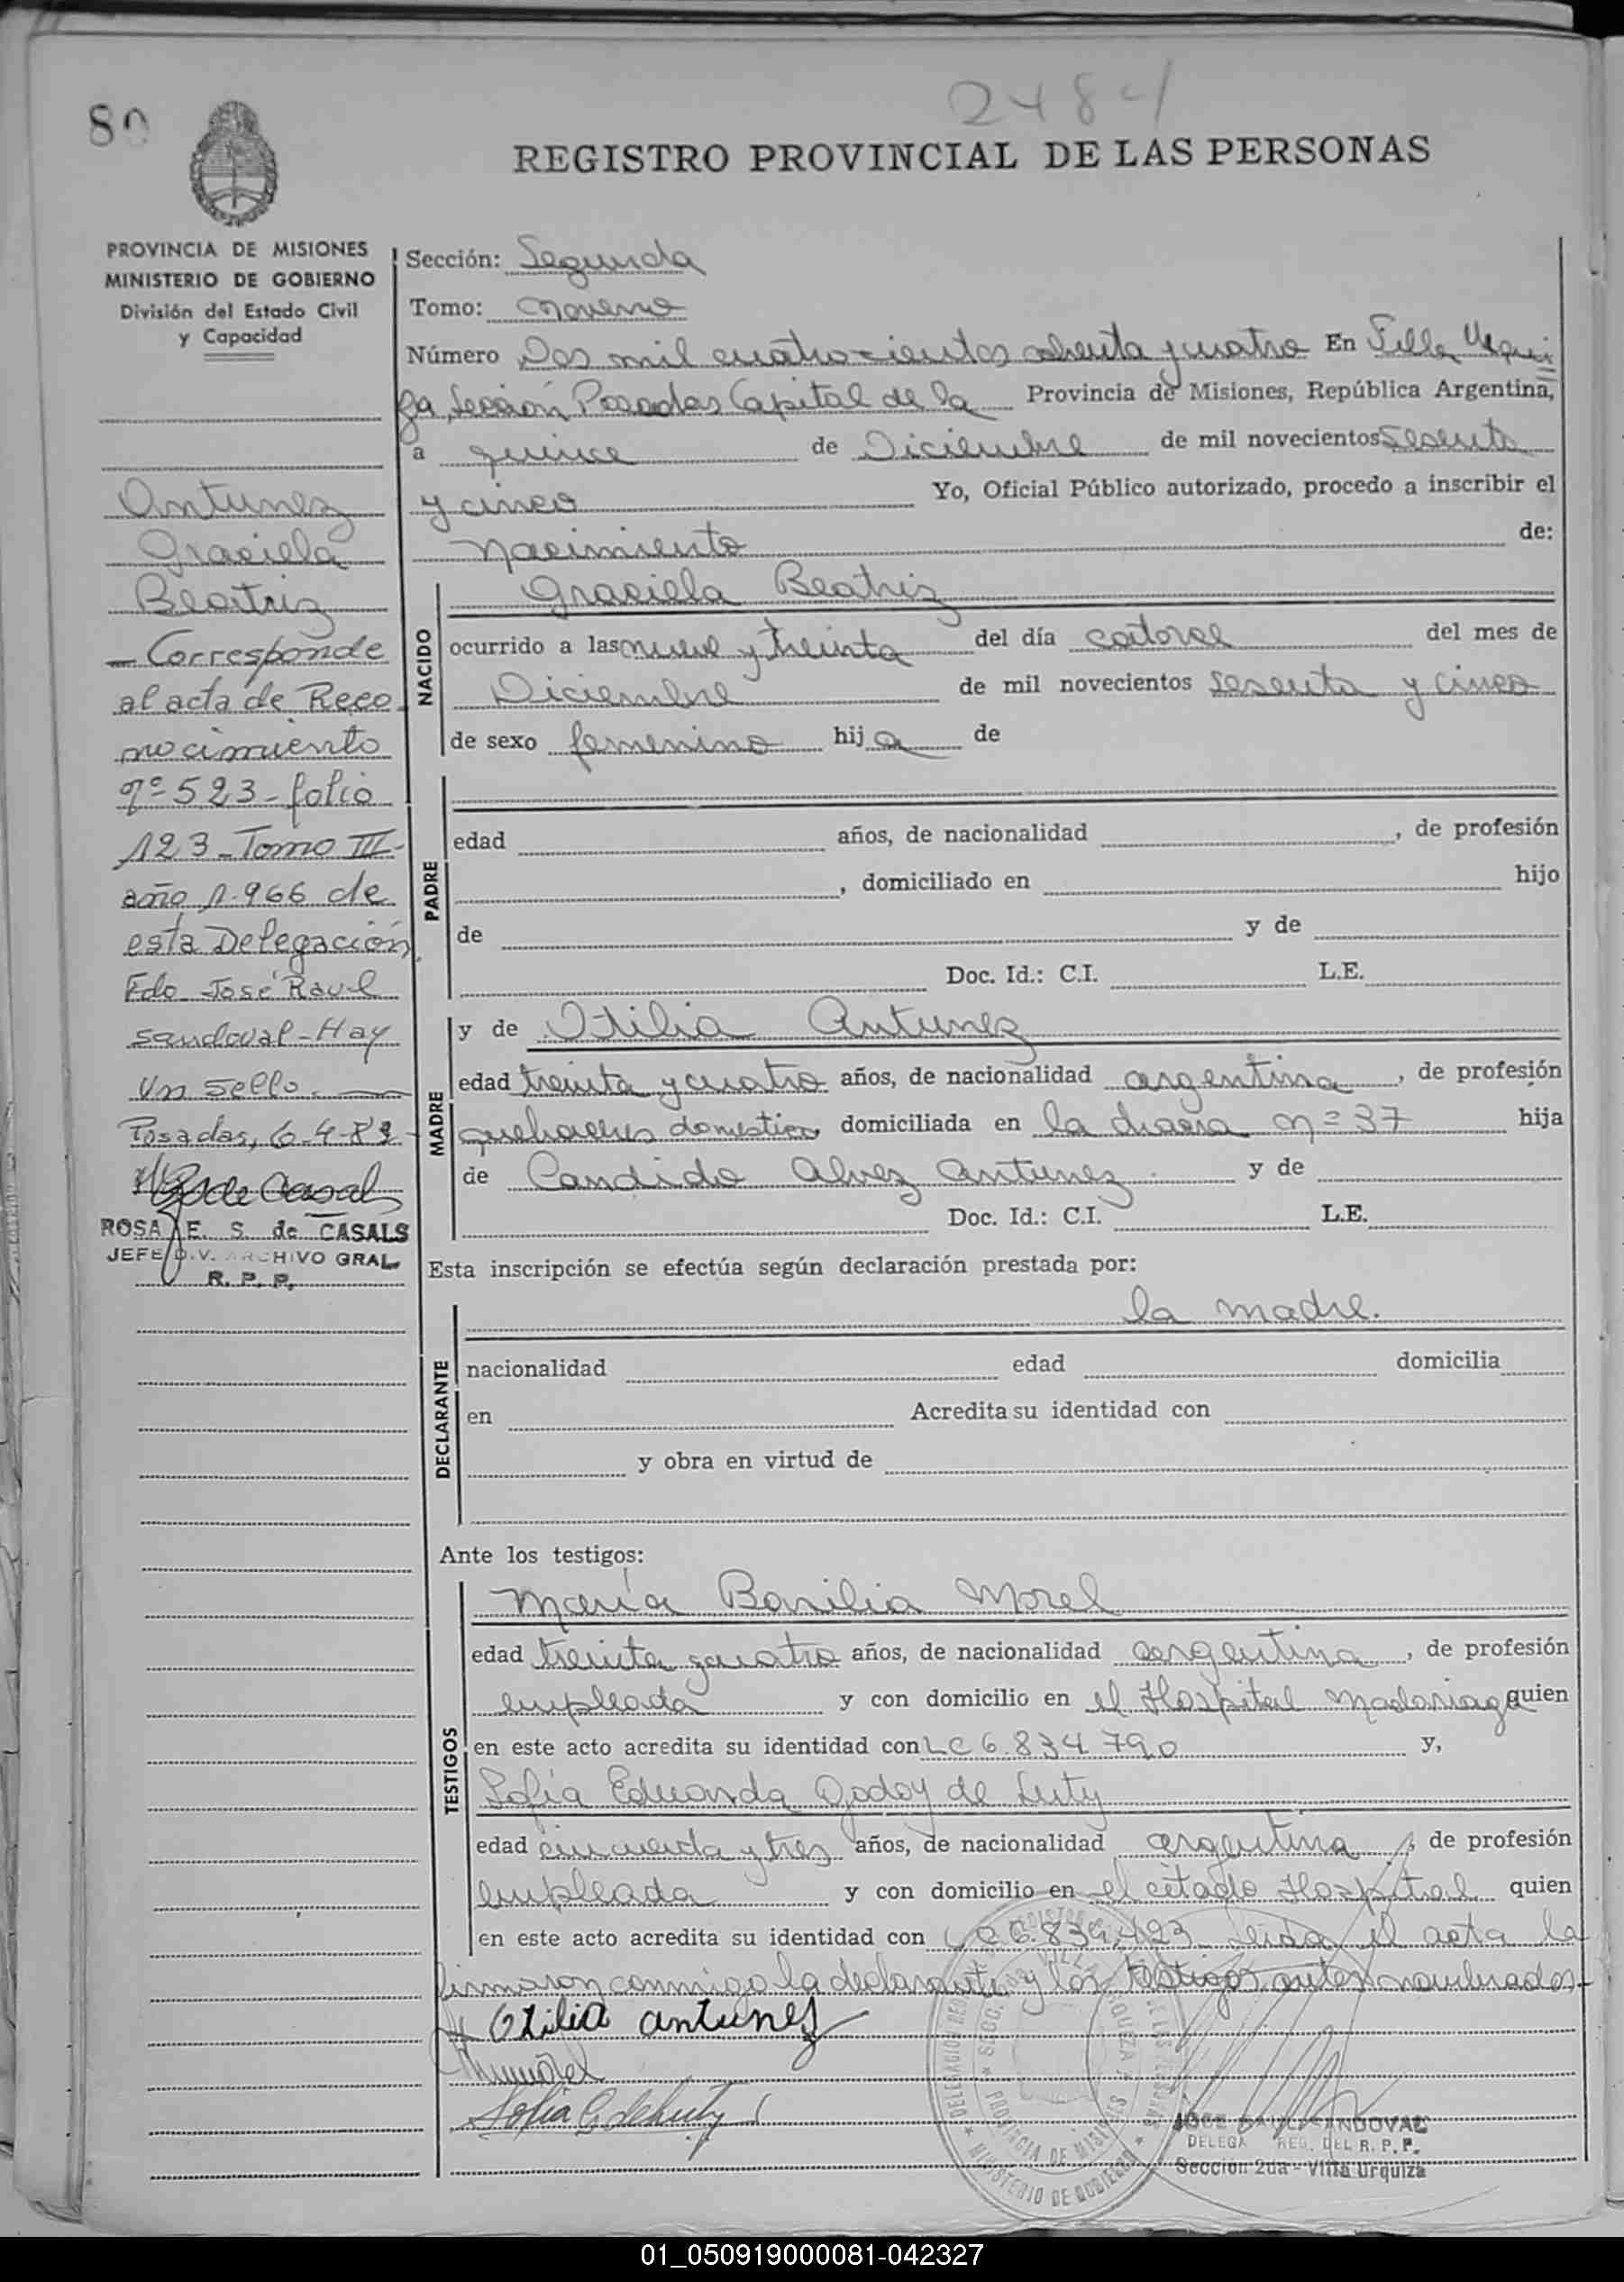 2484
80
REGISTRO PROVINCIAL DE LAS PERSONAS
PROVINCIA DE MISIONES
MINISTERIO DE GOBIERNO
División del Estado Civil
y Capacidad
Antunez
Graciela
Beatriz
- Corresponde
al acta de Reco
nocimiento
nº 523 - folio
123 - Tomo III -
año 1.966 de
esta Delegación
Fdo José Raul
Sandoval - Hay
un sello.
Posadas, 6-4-89
ROSA E. S. de CASALS
JEFE DIV. ARCHIVO GRAL.
R. P. P.
Sección: Segunda
Tomo: Noveno
Número Dos mil cuatrocientos ochenta y cuatro En Villa Urqui
za, Sección Posadas Capital de la Provincia de Misiones, República Argentina,
a quince de Diciembre de mil novecientos sesenta
y cinco Yo, Oficial Público autorizado, procedo a inscribir el
nacimiento de:
NACIDO
Graciela Beatriz
ocurrido a las nueve y treinta del día catorce del mes de
Diciembre de mil novecientos sesenta y cinco
de sexo femenino hija de
PADRE
edad años, de nacionalidad , de profesión
, domiciliado en hijo
de y de
Doc. Id.: C.I. L.E.
MADRE
y de Otilia Antunez
edad treinta y cuatro años, de nacionalidad argentina, de profesión
quehaceres domestico domiciliada en la chacra nº 37 hija
de Candido Alvez Antunez y de
Doc. Id.: C.I. L.E.
Esta inscripción se efectúa según declaración prestada por:
DECLARANTE
la madre.
nacionalidad edad domicilia
en Acredita su identidad con
y obra en virtud de
Ante los testigos:
TESTIGOS
María Basilia Morel
edad treinta y cuatro años, de nacionalidad argentina, de profesión
empleada y con domicilio en el Hospital Madariaga quien
en este acto acredita su identidad con LC 6.834.790 y,
Sofia Eduarda Godoy de Luty
edad cincuenta y tres años, de nacionalidad argentina, de profesión
empleada y con domicilio en el citado Hospital quien
en este acto acredita su identidad con LC 6.839.423 Leida el acta la
firmaron conmigo la declarante y los testigos antes nombrados-
Otilia antunez
Sofia G de Luty
JOSE RAUL SANDOVAL
DELEGA REG. DEL R. P. P.
Sección 2da - Villa Urquiza
01_050919000081-042327